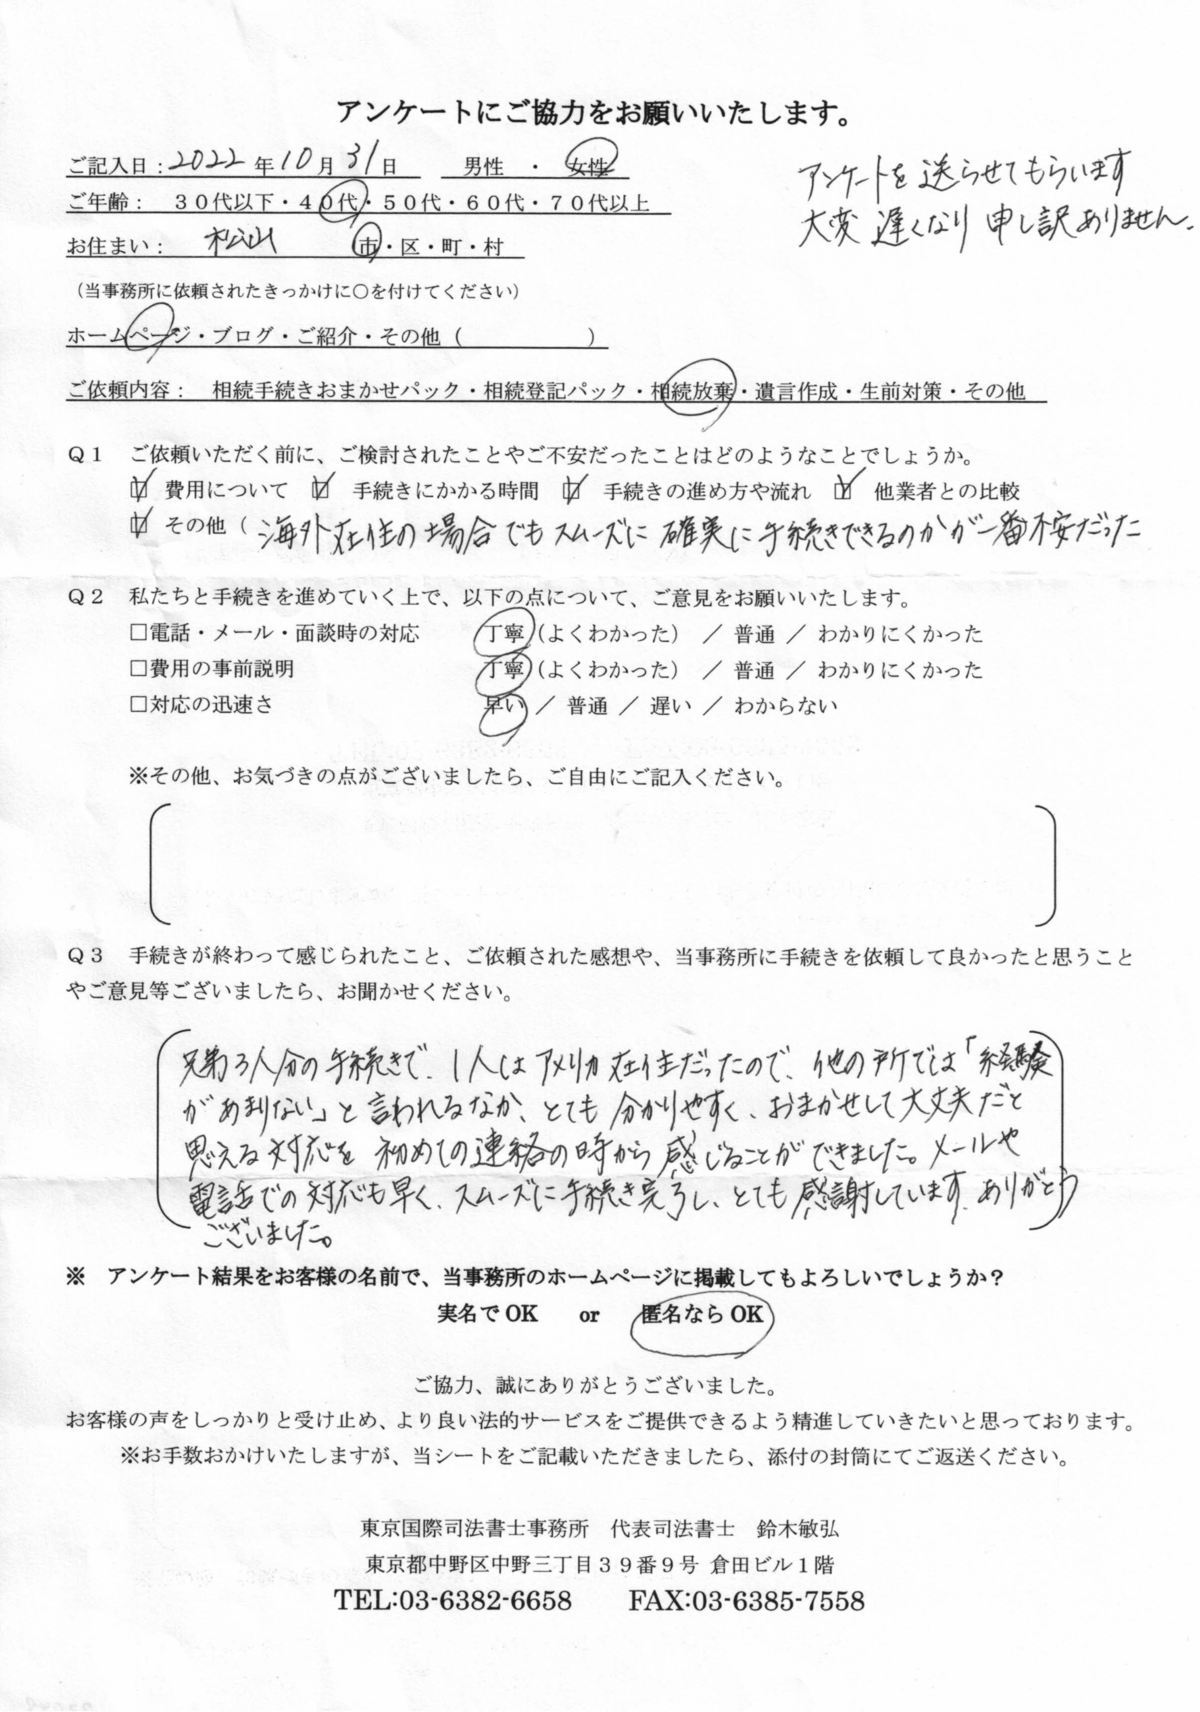 アンケートにご協力をお願いいたします。
ご記入日：2022年10月31日　男性　・　女性
アンケートを送らせてもらいます
ご年齢：　３０代以下・４０代・５０代・６０代・７０代以上
大変遅くなり申し訳ありません。
お住まい：　松山　市・区・町・村
（当事務所に依頼されたきっかけに〇を付けてください）
ホームページ・ブログ・ご紹介・その他（　　　　　　）
ご依頼内容：　相続手続きおまかせパック・相続登記パック・相続放棄・遺言作成・生前対策・その他
Ｑ１　ご依頼いただく前に、ご検討されたことやご不安だったことはどのようなことでしょうか。
☑ 費用について　☑ 手続きにかかる時間　☑ 手続きの進め方や流れ　☑ 他業者との比較
☑ その他（海外在住の場合でもスムーズに確実に手続きできるのかが一番不安だった
Ｑ２　私たちと手続きを進めていく上で、以下の点について、ご意見をお願いいたします。
□電話・メール・面談時の対応　丁寧（よくわかった）　／ 普通 ／ わかりにくかった
□費用の事前説明　丁寧（よくわかった）　／ 普通 ／ わかりにくかった
□対応の迅速さ　早い ／ 普通 ／ 遅い ／ わからない
※その他、お気づきの点がございましたら、ご自由にご記入ください。
Ｑ３　手続きが終わって感じられたこと、ご依頼された感想や、当事務所に手続きを依頼して良かったと思うこと
やご意見等ございましたら、お聞かせください。
兄弟3人分の手続きで、1人はアメリカ在住だったので、他の所では「経験
があまりない」と言われるなか、とても分かりやすく、おまかせして大丈夫だと
思える対応を初めての連絡の時から感じることができました。メールや
電話での対応も早く、スムーズに手続き完了し、とても感謝しています。ありがとう
ございました。
※　アンケート結果をお客様の名前で、当事務所のホームページに掲載してもよろしいでしょうか？
実名で OK　or　匿名なら OK
ご協力、誠にありがとうございました。
お客様の声をしっかりと受け止め、より良い法的サービスをご提供できるよう精進していきたいと思っております。
※お手数おかけいたしますが、当シートをご記載いただきましたら、添付の封筒にてご返送ください。
東京国際司法書士事務所　代表司法書士　鈴木敏弘
東京都中野区中野三丁目３９番９号 倉田ビル１階
TEL:03-6382-6658　FAX:03-6385-7558